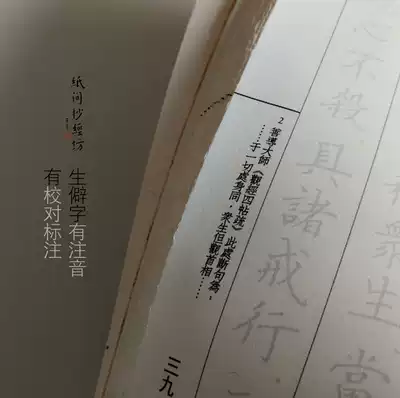 眾生當
心不殺具諸戒行
2 善導大師《觀經四帖疏》此處斷句為：
……于一切處身同，眾生但觀首相……
三九
紙间抄經坊
生僻字有注音
有校对标注